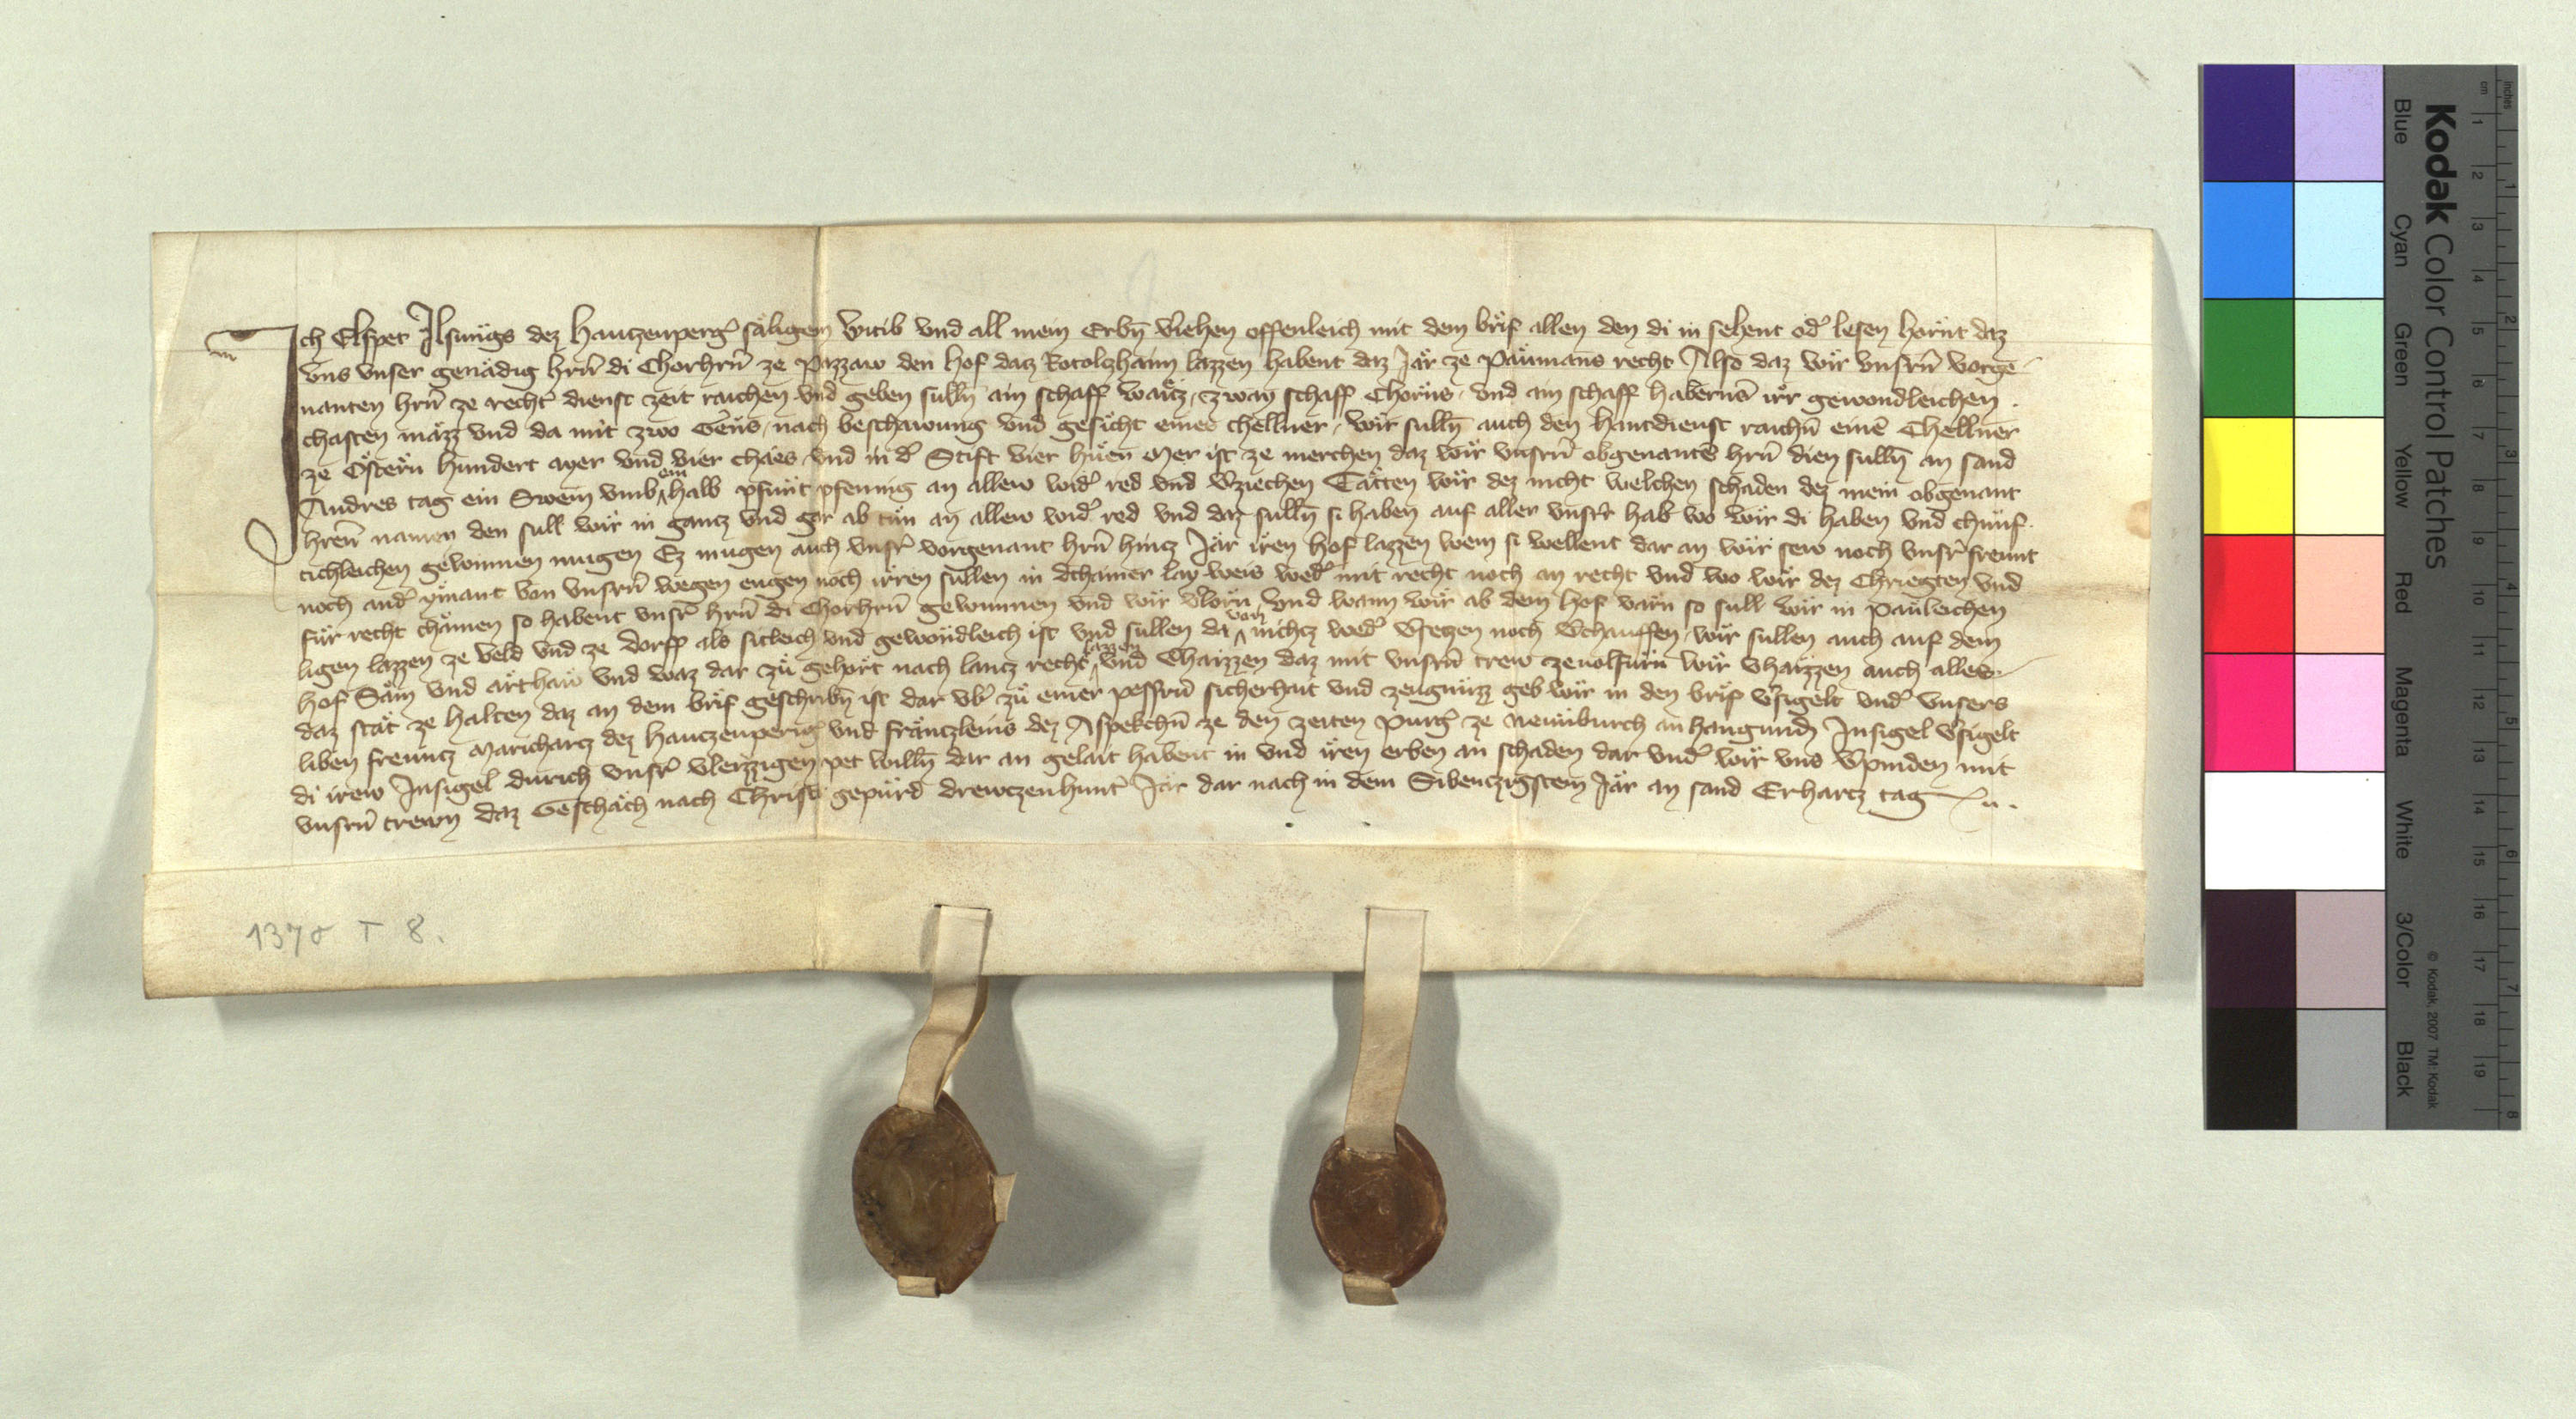 Ich Elspet Ilsungs dez Hauczenperg̾ säligen Witib vnd all mein Erbn̄ v̾iehen offenleich mit dem brif allen den di in sehent od̾ lesen hörnt daz
vns vnser genädig hr̄n di Chorhr̄n ze Pazzaw den hof datz Rotolzhaim lazzen habent daz Jär ze paumans recht Also daz wir vnsr̄n vorge-
nanten hr̄n ze recht̾ dienst zeit raichen vnd geben sulln̄ ain schaff waitz, zway schaff Chorns, vnd ain schaff haberns irr gewondleichen.
chasten mäzz vnd da mit zwo Gens, nach beschawung vnd gesicht eines chellner, wir sulln̄ auch den hantdienst raichn̄ einē Chellner
ze Östern hundert ayer vnd vier chäes vnd in d̾ Stift vier hüen Mer ist ze merchen daz wir vnsrn̄ obgenantē hrn̄ dien sulln̄ an sand
Andres tag ein Swein vmb ein halb pfunt pfennig an allew wid̾ red vnd v̾ziechen Tätten wir dez nicht welchen schaden dez mein obgenant
hren̄ namen den sull wir in gancz vnd gar ab tün an allew wid̾ red vnd daz sulln̄ si haben auf aller vnsrr hab wo wir di haben vnd chunf.
tichleichen gewinnen mugen Ez mugen auch vnsr̾ vorgenant hrn̄ hincz Jär iren hof lazzen wem si wellent dar an wir sew noch vnsr̾ freunt
noch and̾ ymant von vnsrn̄ wegen engen noch irren sullen in dchainer lay weis wed̾ mit recht noch an recht vnd wo wir dez Chriegten vnd
für recht chämen so habent vnsr̾ hrn̄ di Chorhrn̄ gewunnen vnd wir v̾lorn vnd wann wir ab dem hof varn so sull wir in päuleichen
ligen lazzen ze veld vnd ze dorff als sitleich vnd gewöndleich ist vnd sullen da von nichtz wed̾ v̾seczen noch v̾chauffen, wir sullen auch auf dem
hof Säm vnd ärthaw vnd waz dar zü gehört nach lantz recht lazzen vnd v̾haizzen daz mit vnsrn̄ trew zeuolfürn wir v̾haizzen auch alles
daz stät ze halten daz an dem brif geschribn̄ ist dar vb̾ zü einer pessrn̄ sicherhait vnd zeugnüzz geb wir in den brif v̾sigelt vnd̾ vnsers
liben freuntz Marichartz dez Hauczenperig̾ vnd fräntzleins dez Aspekchn̄ ze den zeiten purg̾ ze Newnburch an hangunden Insigel v̾sigelt
di irew Insigel durich vnsr̾ vleizzigen pet willn̄ dar an gelait habent in vnd iren erben an schaden dar vnd̾ wir vns v̾pinden mit
vnsrn̄ trewn daz Geschäch nach Christ gepürd drewczenhunt̾ Jär dar nach in dem Sibenczigstem Jär an sand Erhartz tag
1370 I 8.
Kodak Color Control Patches
Blue Cyan Green Yellow Red Magenta White 3/Color Black
© Kodak, 2007 TM: Kodak
inches 1 2 3 4 5 6 7 8
cm 1 2 3 4 5 6 7 8 9 10 11 12 13 14 15 16 17 18 19